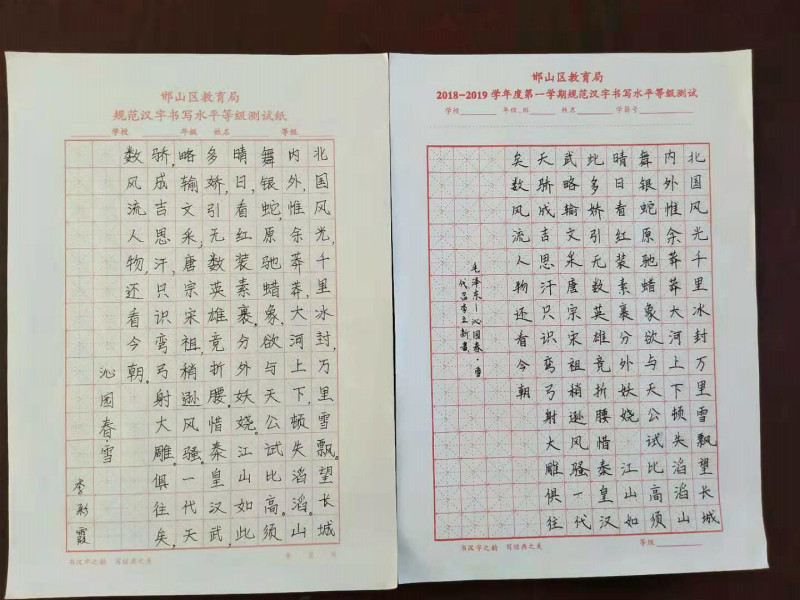 邯山区教育局
规范汉字书写水平等级测试纸
学校 年级 姓名 等级
北国风光,千里冰封,万里雪飘。望长城
内外,惟余莽莽,大河上下,顿失滔滔。山
舞银蛇,原驰蜡象,欲与天公试比高。须
晴日,看红装素裹,分外妖娆。江山如此
多娇,引无数英雄竞折腰。惜秦皇汉武,
略输文采;唐宗宋祖,稍逊风骚。一代天
骄,成吉思汗,只识弯弓射大雕。俱往矣,
数风流人物,还看今朝。
沁园春·雪
李霞
书汉字之韵 写经典之美
邯山区教育局
2018-2019学年度第一学期规范汉字书写水平等级测试
学校 年级、班 姓名 学籍号
北国风光千里冰封万里雪飘望长城
内外惟余莽莽大河上下顿失滔滔山
舞银蛇原驰蜡象欲与天公试比高须
晴日看红装素裹分外妖娆江山如
此多娇引无数英雄竞折腰惜秦皇汉
武略输文采唐宗宋祖稍逊风骚一代
天骄成吉思汗只识弯弓射大雕俱往
矣数风流人物还看今朝
毛泽东 沁园春·雪
李立新书
书汉字之韵 写经典之美
等级